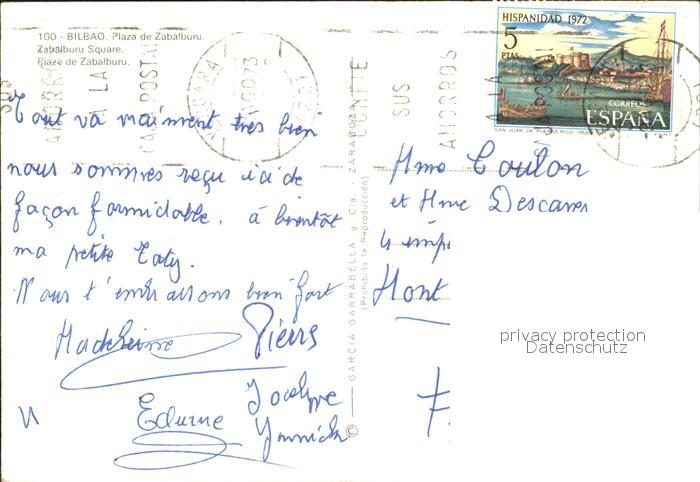 100 - BILBAO. Plaza de Zabalburu.
Zabalburu Square.
Place de Zabalburu.
HISPANIDAD 1972
5
PTAS
CORREOS
ESPAÑA
SAN JUAN DE PUERTO RICO
CONFIE
SUS
AHORROS
A LA
CAJ POSTAL
Tout va vraiment très bien
nous sommes reçu ici de
façon formidable. à bientôt
ma petite Taty.
Nous t'embrassons bien fort
Madeleine Pierre
Jocelyne
Edurne Yannick
GARCIA GARRABELLA y Cia. - ZARAGOZA
(Prohibida la Reproducción)
©
Mme Coulon
et Mme Descaves
4 imp
Mont
F.
privacy protection
Datenschutz